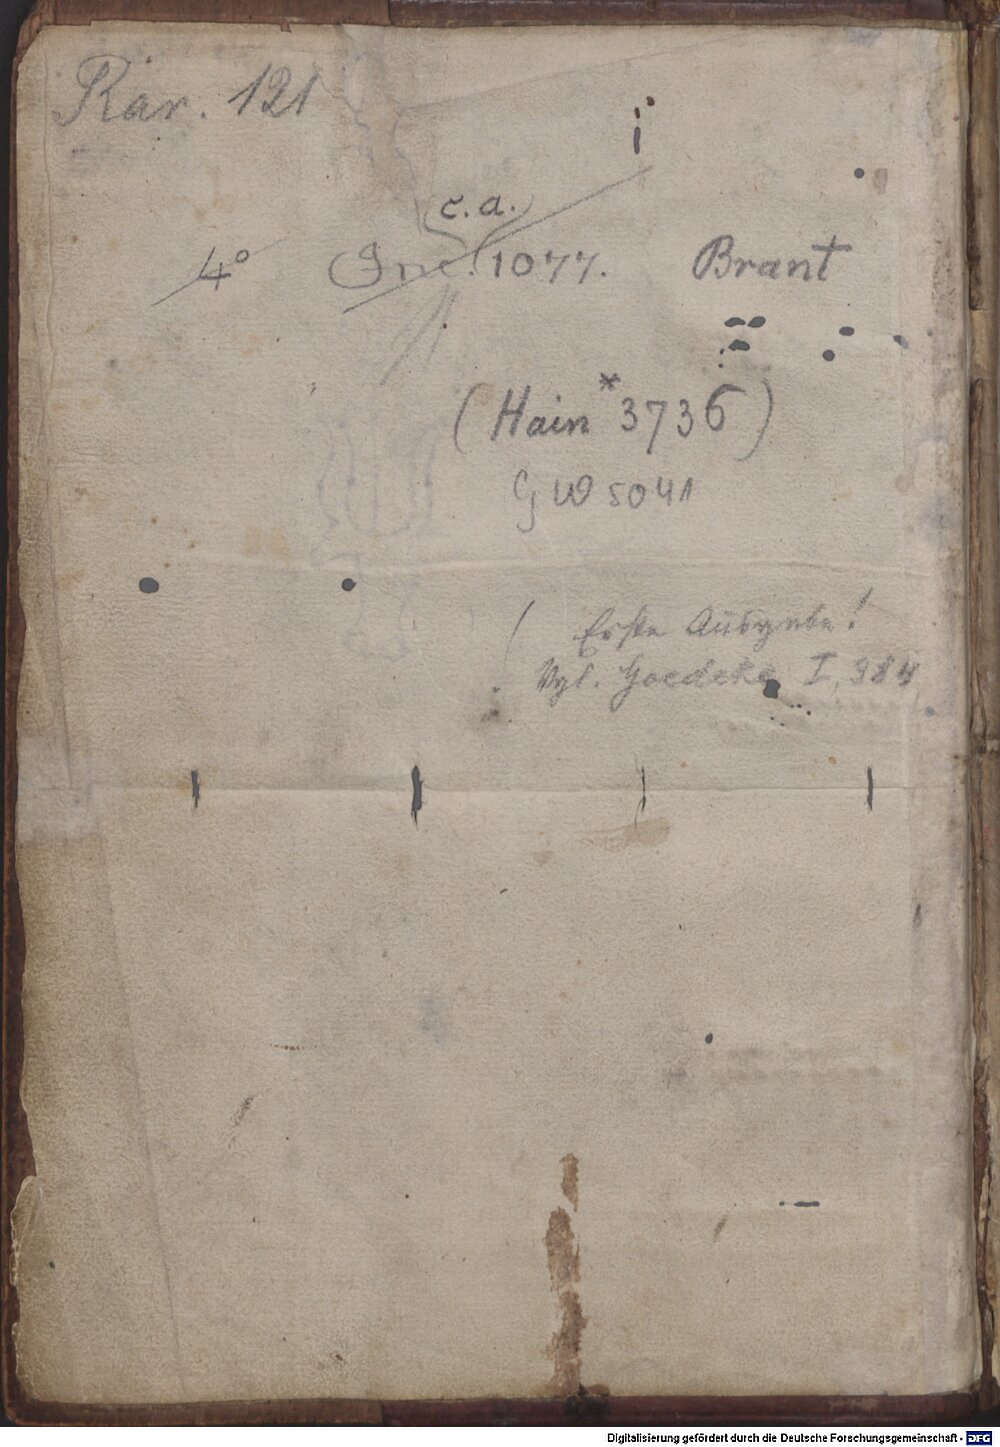 Rar. 121
c.a.
4° Inc. 1077. Brant
(Hain* 3736)
GW 5041
( Erste Ausgabe!
Vgl. Goedeke I, 384
Digitalisierung gefördert durch die Deutsche Forschungsgemeinschaft - DFG